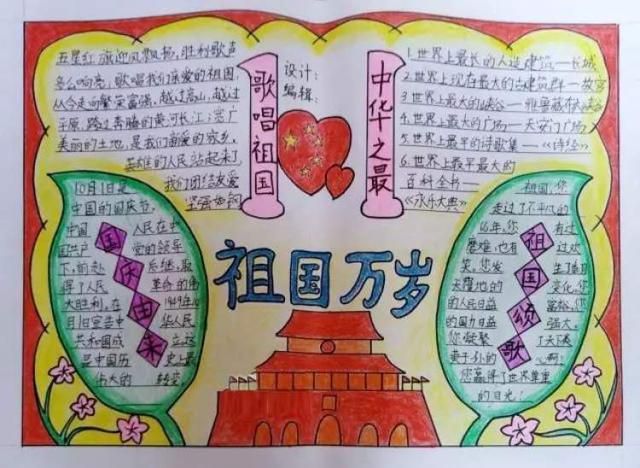 五星红旗迎风飘扬，胜利歌声
多么响亮，歌唱我们亲爱的祖国，
从今走向繁荣富强，越过高山，越过
平原，跨过奔腾的黄河长江；宽广
美丽的土地，是我们亲爱的家乡，
英雄的人民站起来了
我们团结友爱
坚强如钢
歌唱祖国
设计：
编辑：
中华之最
1.世界上最长的人造建筑——长城
2.世界上现存最大的古建筑群——故宫
3.世界上最大的峡谷——雅鲁藏布大峡谷
4.世界上最大的广场——天安门广场
5.世界上最早的诗歌集——《诗经》
6.世界上最早最大的
百科全书——
《永乐大典》
10月1日是
中国的国庆节，
中国 人民在中
国共产 党的领导
下，前赴 后继，取
得了人民 革命的伟
大胜利，在 1949年10
月1日宣告中 华人民
共和国成 立，这
是中国历 史上最
伟大的 转变
国庆由来
祖国万岁
祖国，您
走过了不平凡的
64年，您 有过
磨难，也有 过欢
笑，您发 生了翻
天覆地的 变化，您
的人民日益 富裕，您
的国力日益 强大，
您凝聚 了天下
炎子孙的 心啊！
您赢得了世界尊重
的目光！
祖国颂歌